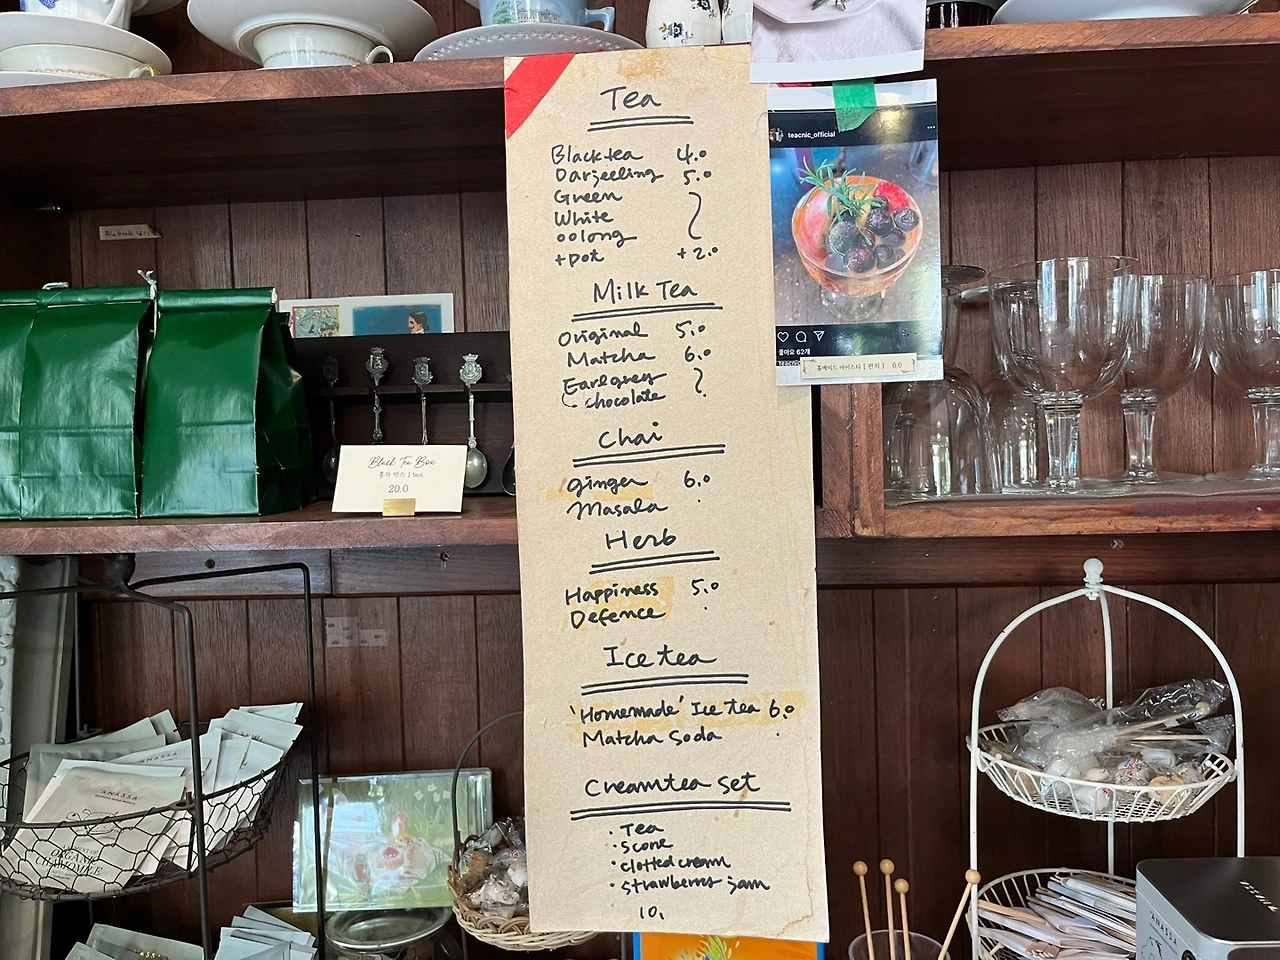 Tea
Black tea 4.0
Darjeeling 5.0
Green
White
oolong
+pot +2.0
Milk Tea
Original 5.0
Matcha 6.0
Earlgrey
chocolate
Chai
ginger 6.0
Masala
Herb
Happiness 5.0
Defence
Ice tea
'Homemade' Ice tea 6.0
Matcha Soda
Creamtea set
· Tea
· Scone
· clotted cream
· strawberry jam
10.
teacnic_official
좋아요 62개
홈메이드 아이스티 [ 펀치 ] 6.0
Black Tea Box
홍차 박스 1 box
20.0
ANASSA
ORGANIC
CHAMOMILE
ANASSA